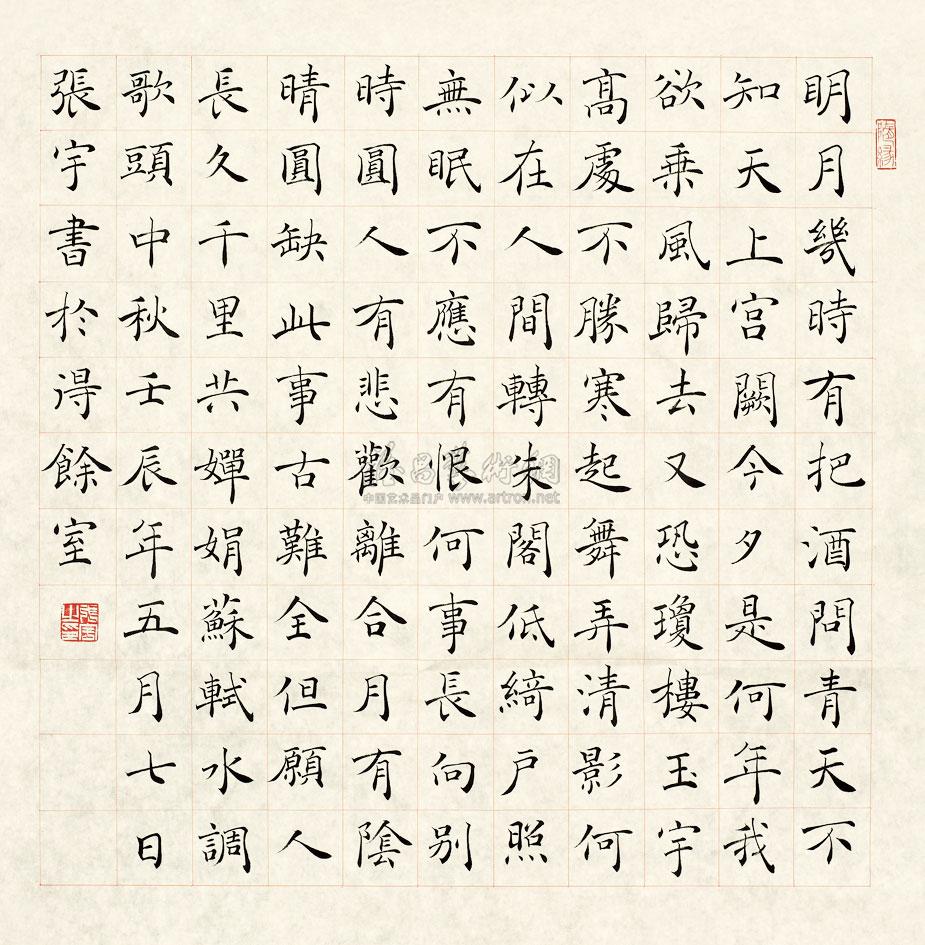 明月幾時有把酒問青天不
知天上宮闕今夕是何年我
欲乘風歸去又恐瓊樓玉宇
髙處不勝寒起舞弄清影何
似在人間轉朱閣低綺戶照
無眠不應有恨何事長向别
時圓人有悲歡離合月有陰
晴圓缺此事古難全但願人
長久千里共嬋娟蘇軾水調
歌頭中秋壬辰年五月七日
張宇書於得餘室
雅昌藝術網
中国艺术品门户 www.artron.net